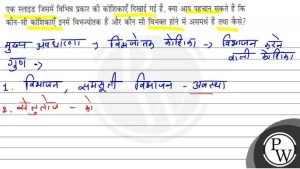 एक स्लाइड जिसमें विभिन्न प्रकार की कोशिकाएँ दिखाई गई हैं, क्या आप पहचान सकते हैं कि
कौन-सी कोशिकाएँ इनमें विभज्योतक हैं और कौन सी विभक्त होने में असमर्थ हैं तथा कैसे?
मुख्य अवधारणा → विभज्योतक कोशिका → विभाजन करने
वाली कोशिका
गुण →
1. विभाजन, समसूत्री विभाजन - अवस्था
2. सेलुलोज - को
P
W